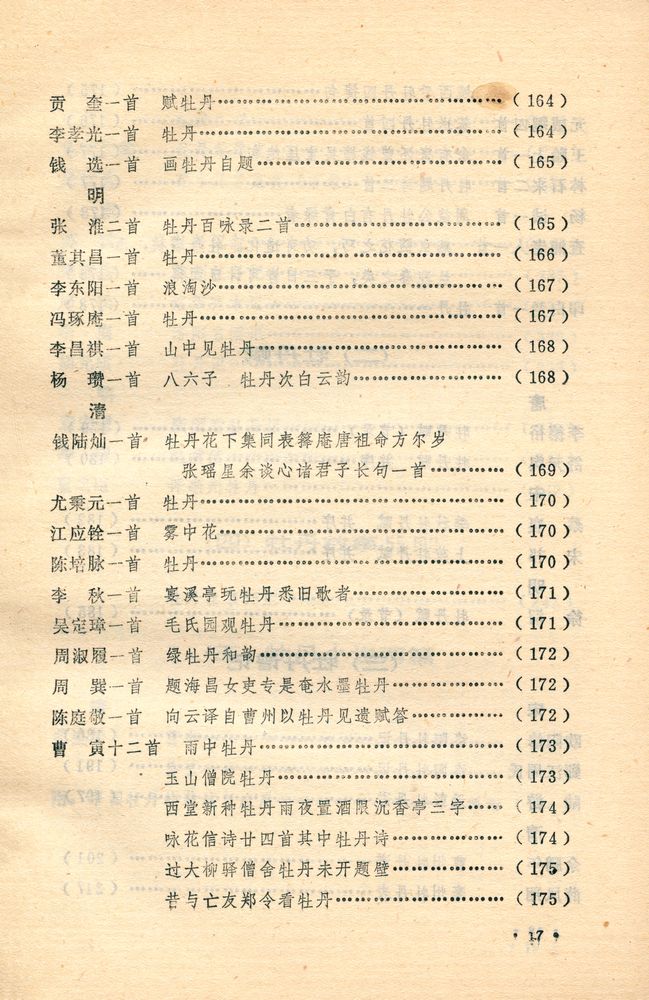 贡　奎一首　赋牡丹……………………（164）
李孝光一首　牡丹……………………（164）
钱　选一首　画牡丹自题……………………（165）
明
张　淮二首　牡丹百咏录二首……………………（165）
董其昌一首　牡丹……………………（166）
李东阳一首　浪淘沙……………………（167）
冯琢庵一首　牡丹……………………（167）
李昌祺一首　山中见牡丹……………………（168）
杨　瓒一首　八六子　牡丹次白云韵……………………（168）
清
钱陆灿一首　牡丹花下集同表篛庵唐祖命方尔岁
张瑶星余谈心诸君子长句一首…………（169）
尤乘元一首　牡丹……………………（170）
江应铨一首　雾中花……………………（170）
陈培脉一首　牡丹……………………（170）
李　秋一首　宴溪亭玩牡丹悉旧歌者……………………（171）
吴定璋一首　毛氏园观牡丹……………………（171）
周淑履一首　绿牡丹和韵……………………（172）
周　巽一首　题海昌女吏专是奄水墨牡丹…………（172）
陈庭敬一首　向云译自曹州以牡丹见遗赋答…………（172）
曹　寅十二首　雨中牡丹……………………（173）
玉山僧院牡丹……………………（173）
西堂新种牡丹雨夜置酒限沉香亭三字……（174）
咏花信诗廿四首其中牡丹诗…………（174）
过大柳驿僧舍牡丹未开题壁…………（175）
昔与亡友郑令看牡丹……………………（175）
·17·